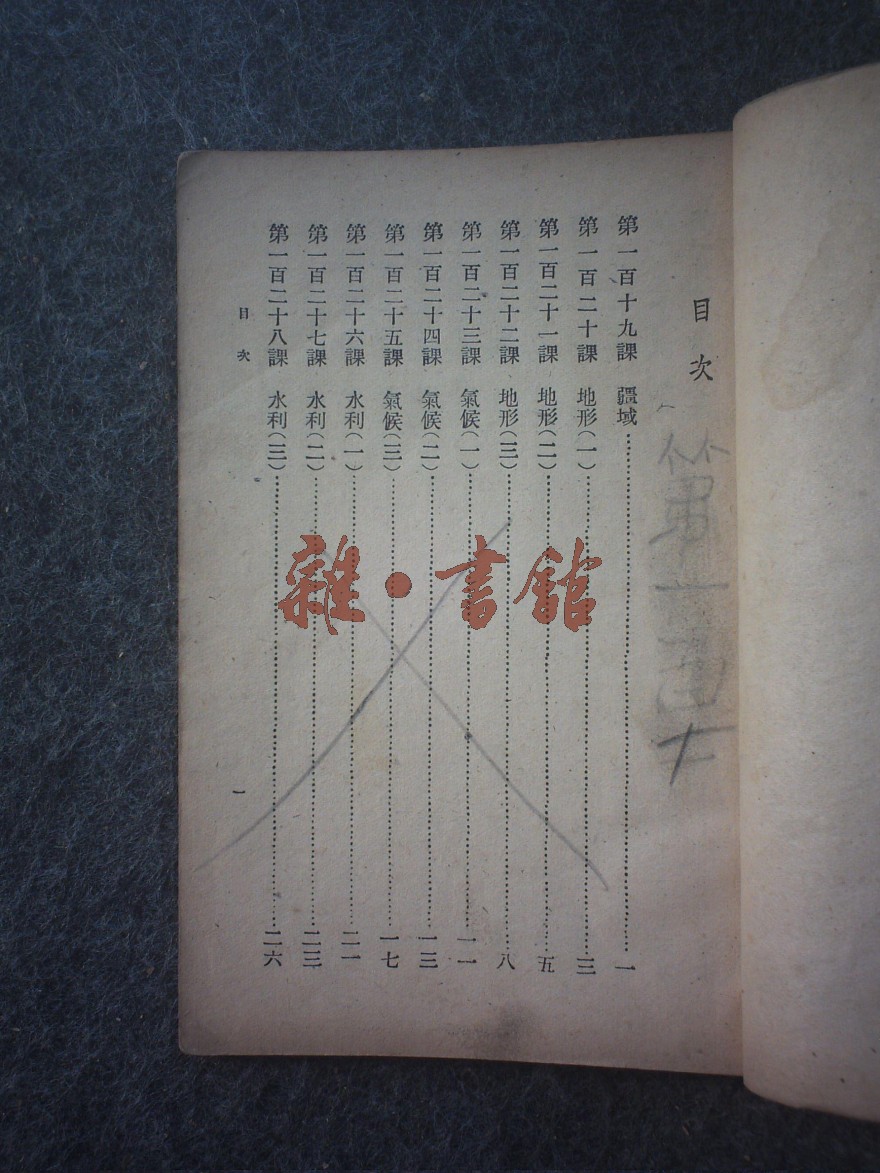 目次
第一百十
第一百十九課 疆域……一
第一百二十課 地形(一)……三
第一百二十一課 地形(二)……五
第一百二十二課 地形(三)……八
第一百二十三課 氣候(一)……一一
第一百二十四課 氣候(二)……一三
第一百二十五課 氣候(三)……一七
第一百二十六課 水利(一)……二一
第一百二十七課 水利(二)……二三
第一百二十八課 水利(三)……二六
目次 一
雜·書館